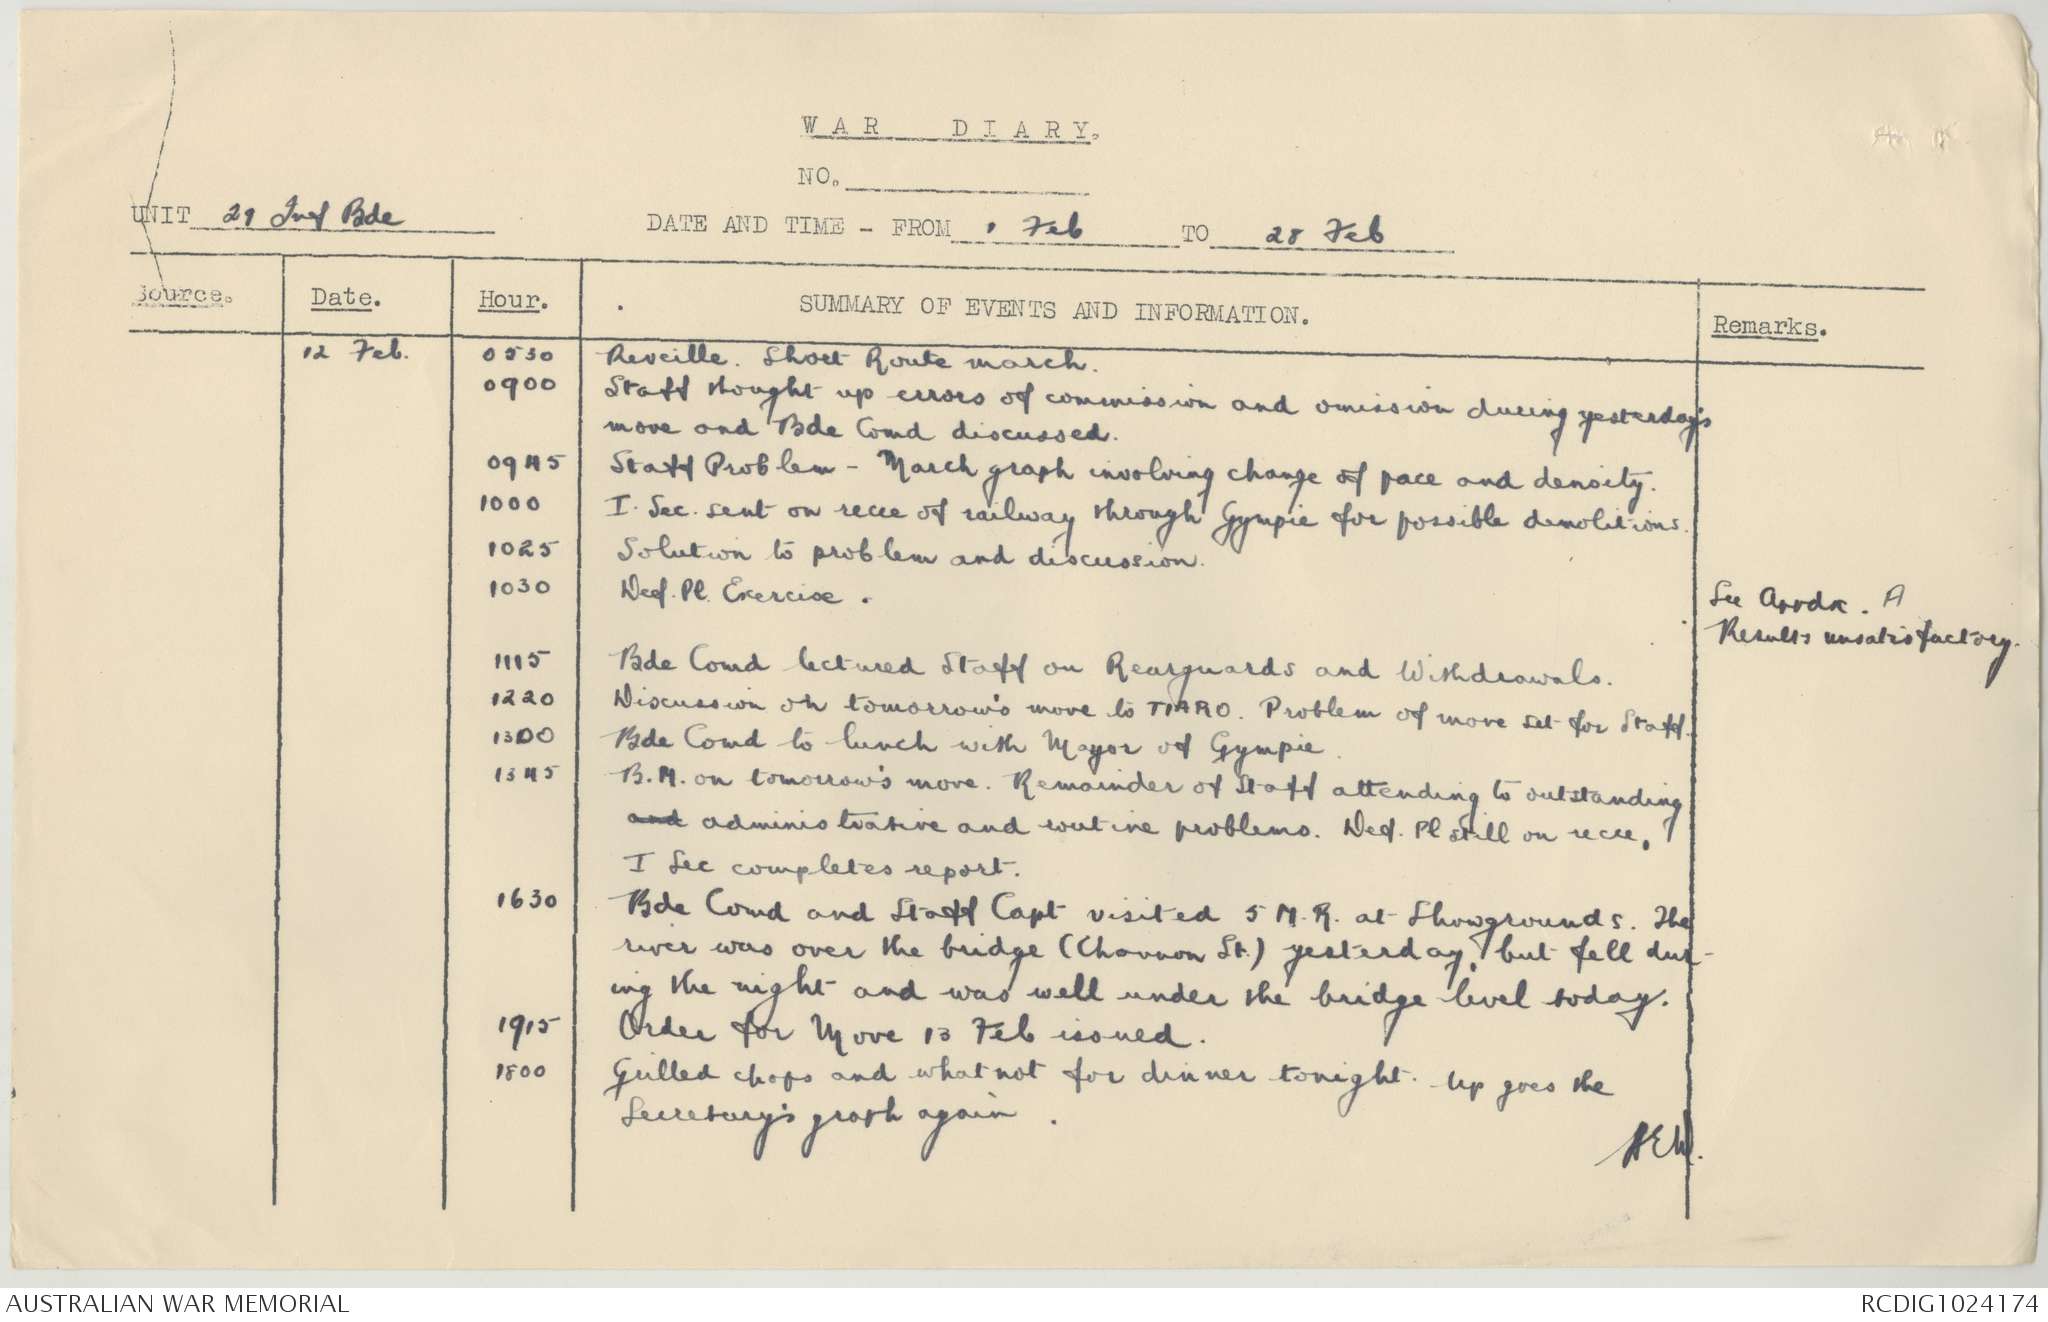 WAR DIARY.
NO.
UNIT 29 Inf Bde DATE AND TIME - FROM 1 Feb TO 28 Feb
Source. Date. Hour. SUMMARY OF EVENTS AND INFORMATION. Remarks.
12 Feb. 0530 Reveille. Short Route march.
0900 Staff thought up errors of commission and omission during yesterday's
move and Bde Comd discussed.
0945 Staff Problem - March graph involving change of pace and density.
1000 I. Sec. sent on recce of railway through Gympie for possible demolitions.
1025 Solution to problem and discussion.
1030 Def. Pl. Exercise. See Appdx. A
Results unsatisfactory.
1115 Bde Comd lectured Staff on Rearguards and Withdrawals.
1220 Discussion on tomorrow's move to TIARO. Problem of move set for Staff.
1300 Bde Comd to lunch with Mayor of Gympie.
1345 B.M. on tomorrow's move. Remainder of Staff attending to outstanding
and administrative and routine problems. Def. Pl still on recce.
I Sec completes report.
1630 Bde Comd and Staff Capt visited 5 M.R. at Showgrounds. The
river was over the bridge (Channon St.) yesterday, but fell dur-
ing the night and was well under the bridge level today.
1915 Order for Move 13 Feb issued.
1800 Grilled chops and whatnot for dinner tonight. Up goes the
Secretary's graph again.
AUSTRALIAN WAR MEMORIAL RCDIG1024174